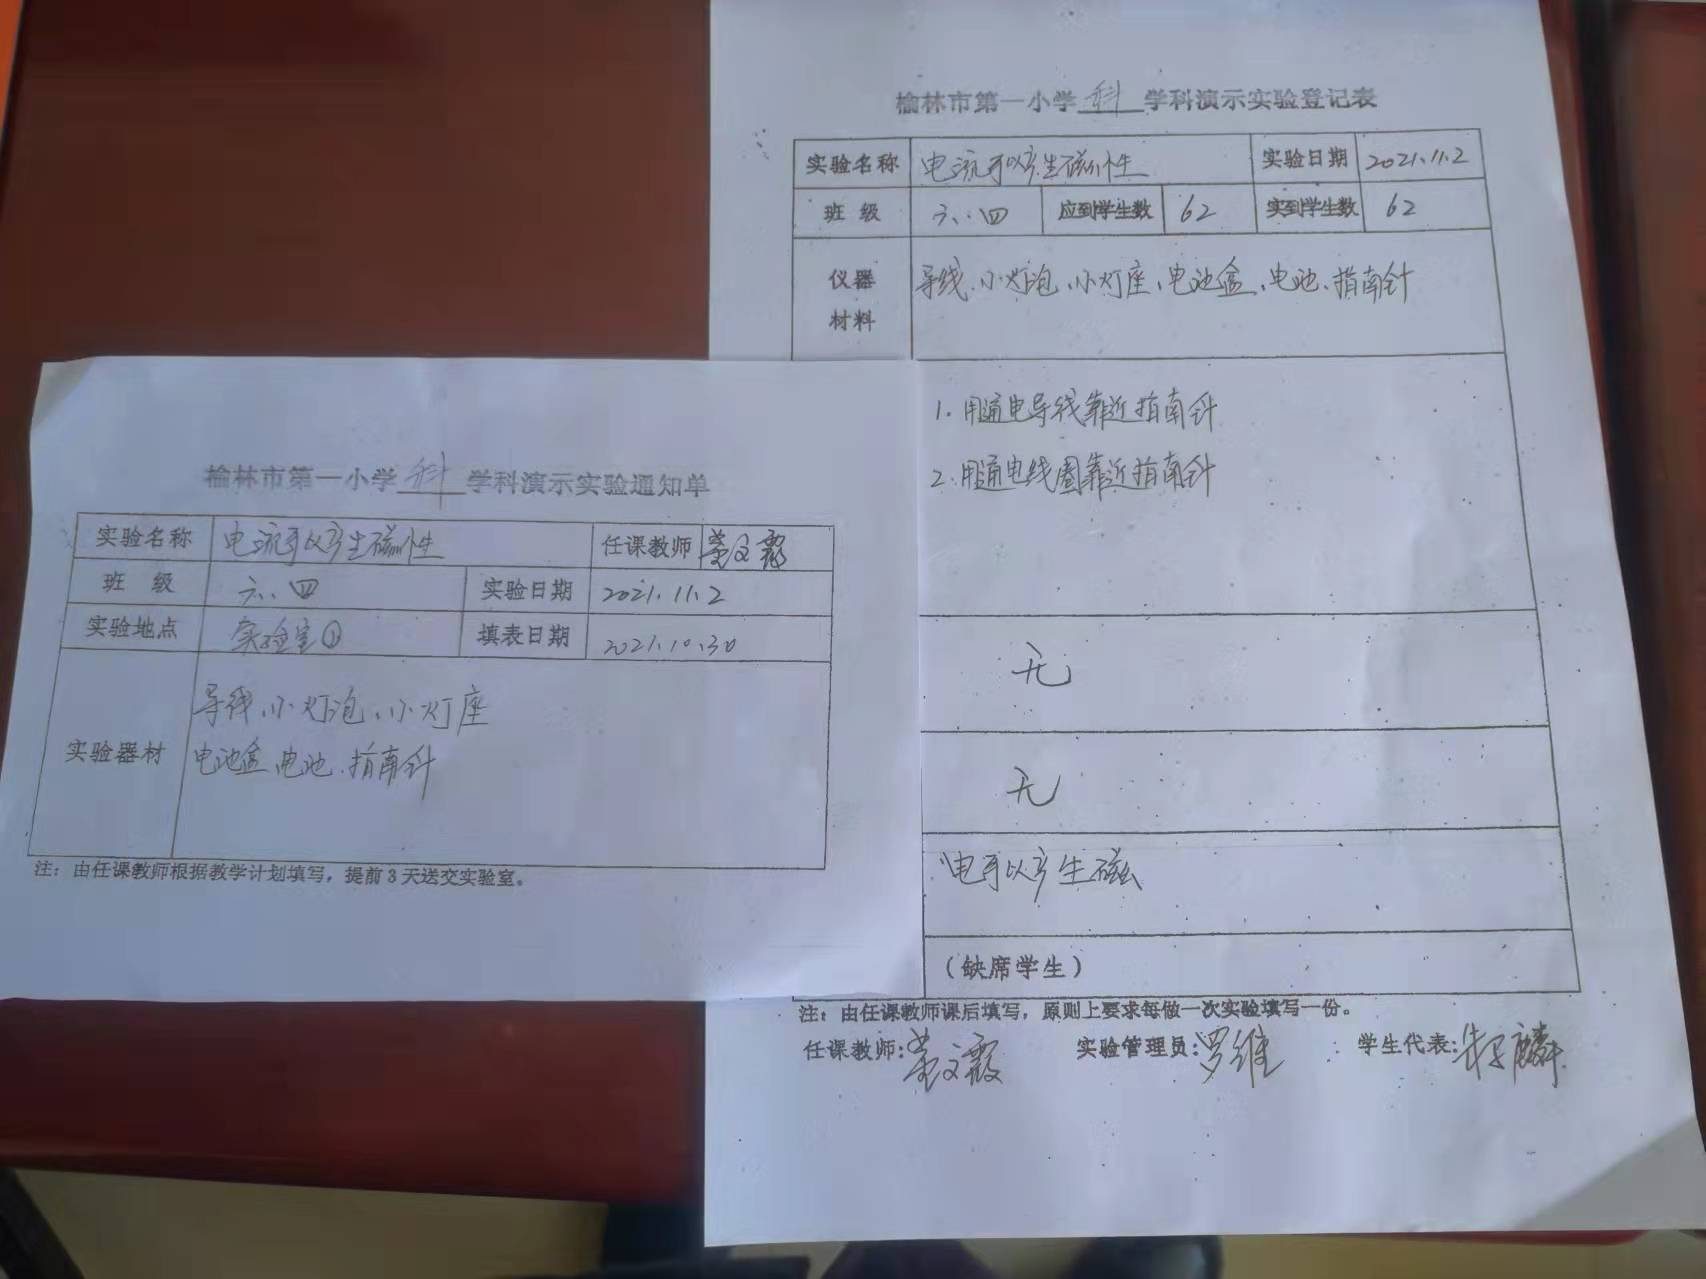 榆林市第一小学 科 学科演示实验登记表
实验名称 电流可以产生磁性 实验日期 2021.11.2
班 级 六.四 应到学生数 62 实到学生数 62
仪器 材料 导线、小灯泡、小灯座、电池盒、电池、指南针
1.用通电导线靠近指南针
2.用通电线圈靠近指南针
无
无
电可以产生磁
(缺席学生)
注:由任课教师课后填写,原则上要求每做一次实验填写一份。
任课教师: 文霞 实验管理员:罗维 学生代表:
榆林市第一小学 科 学科演示实验通知单
实验名称 电流可以产生磁性 任课教师 文霞
班 级 六.四 实验日期 2021.11.2
实验地点 实验室① 填表日期 2021.10.30
实验器材
导线、小灯泡、小灯座
电池盒、电池、指南针
注:由任课教师根据教学计划填写,提前3天送交实验室。